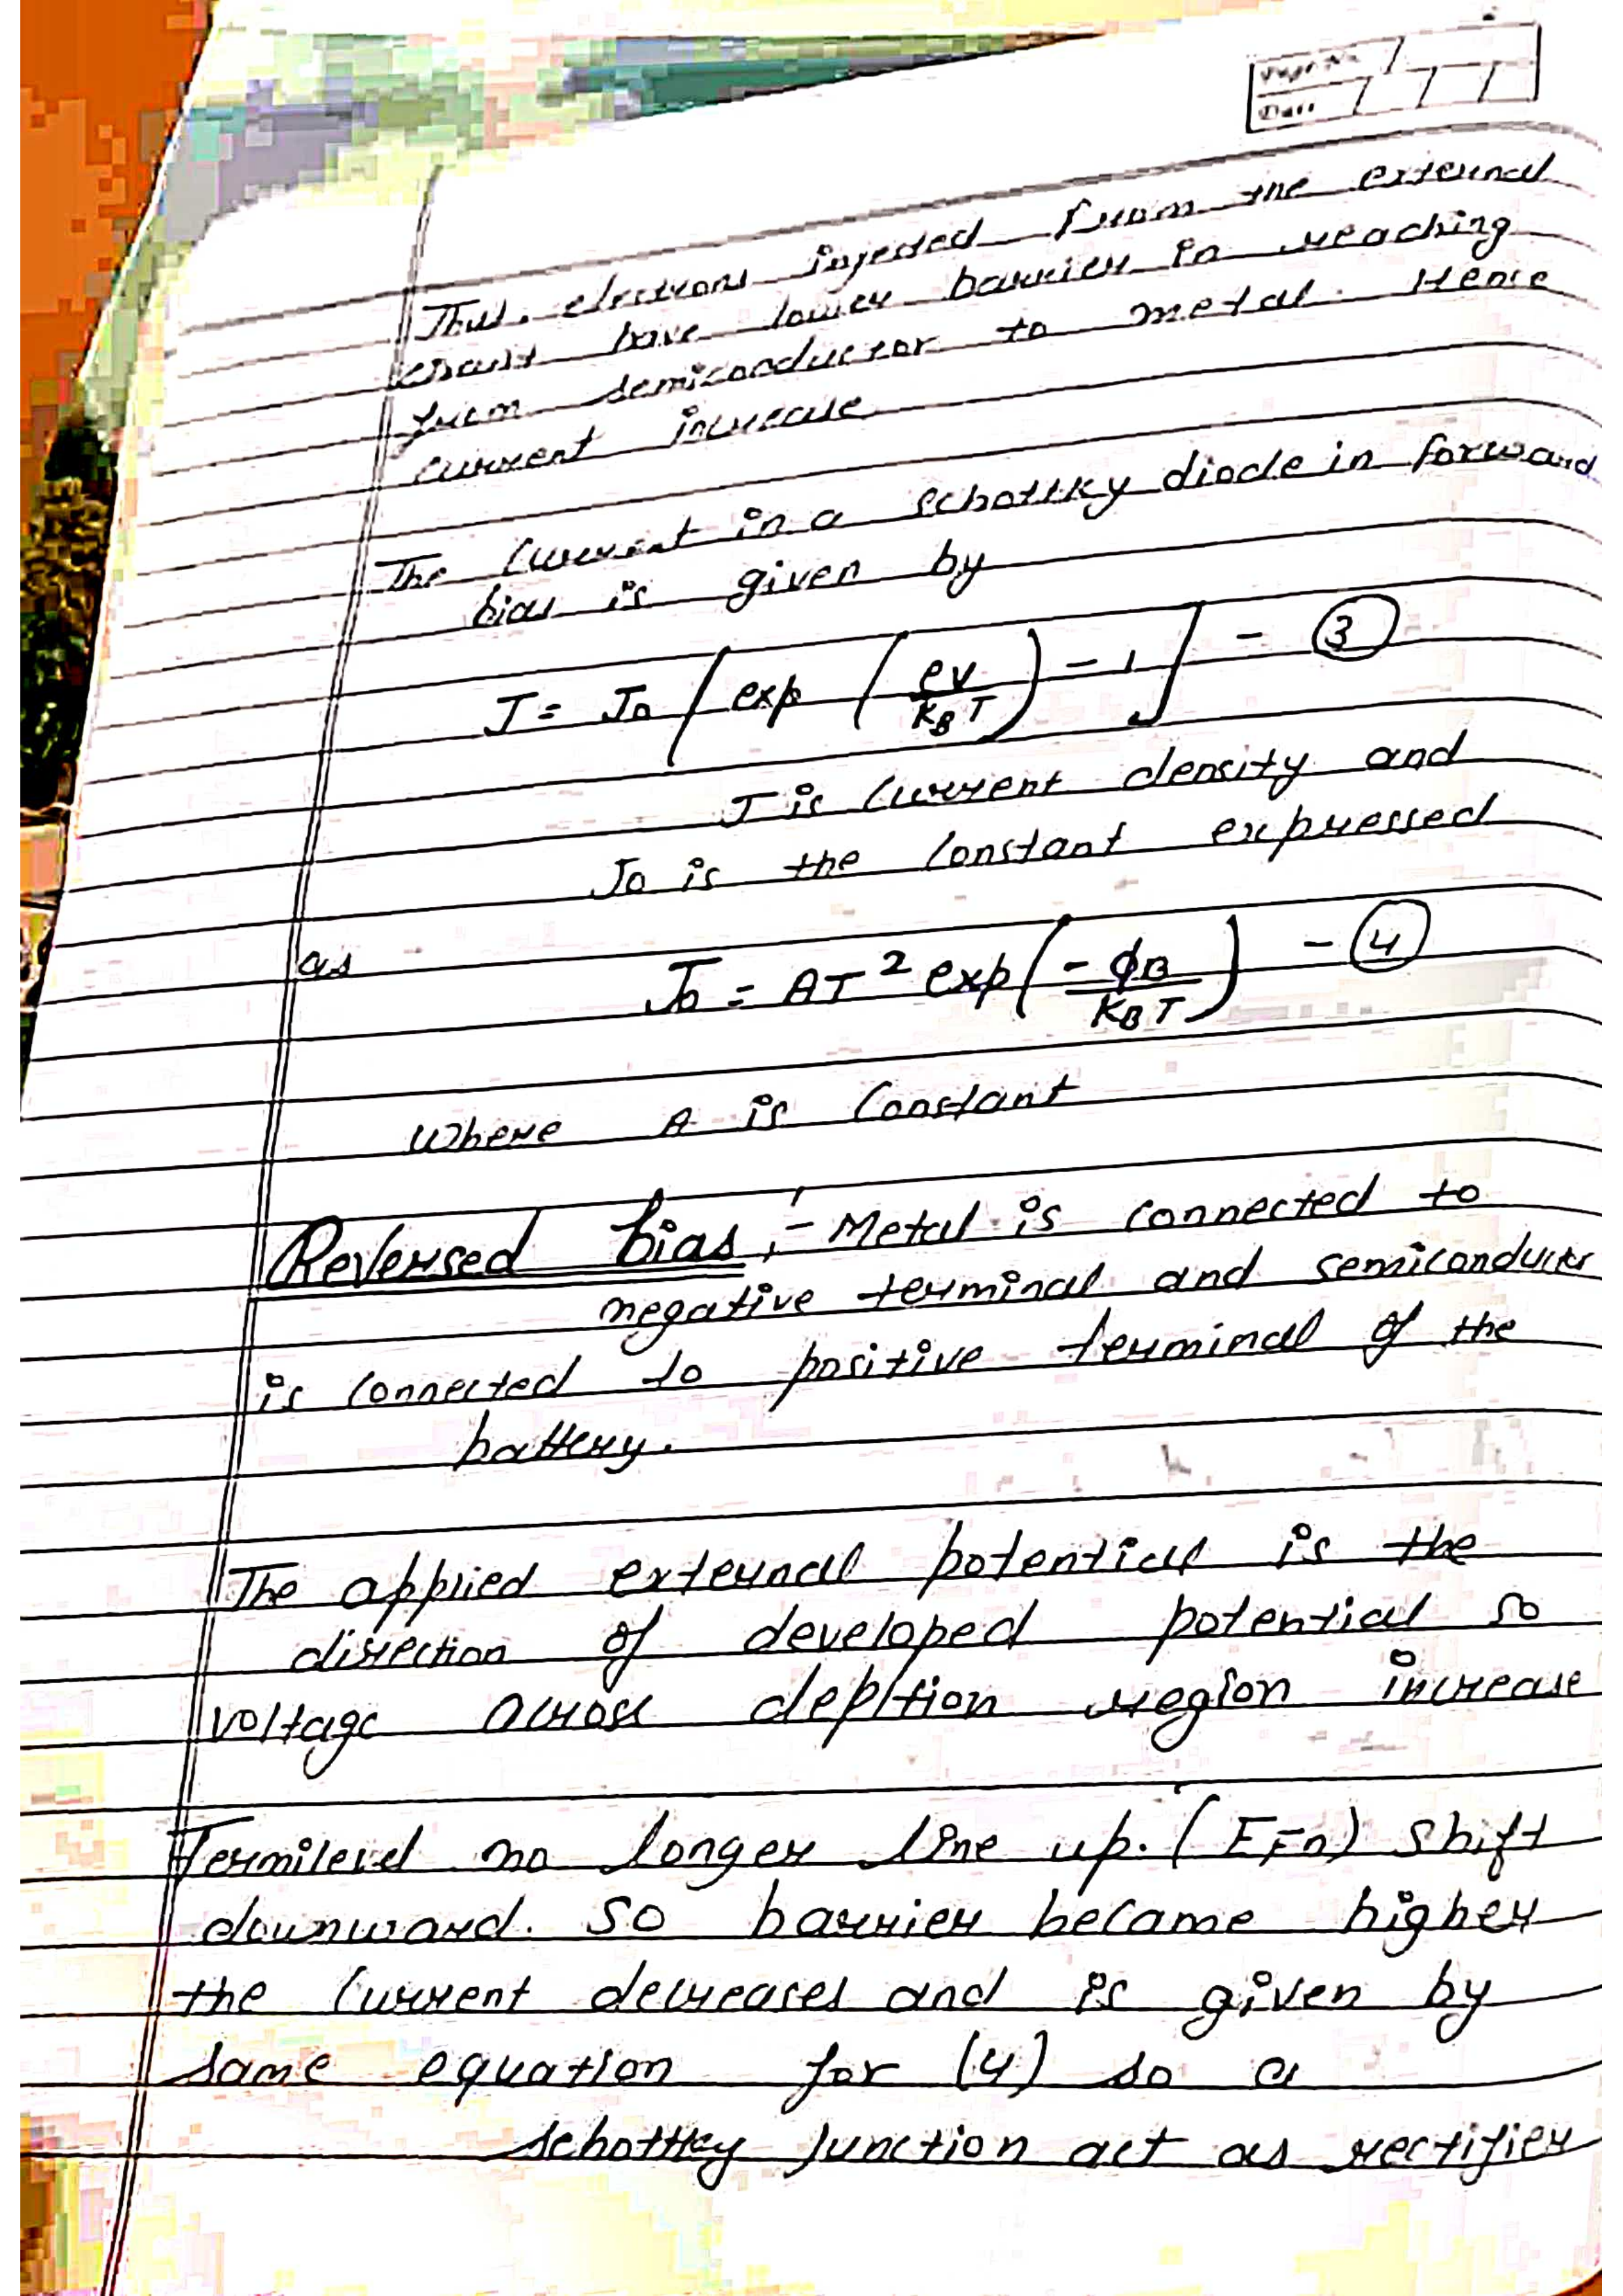 Page No.
Date
Thus, electrons injected from the external
have lower barrier in reaching
from semiconductor to metal. Hence
current increase
The current in a schottky diode in forward
bias is given by
J = J0 [exp (eV/KBT) - 1] - ③
J is current density and
J0 is the constant expressed
as
J0 = AT² exp(-ϕB/KBT) - ④
where A is constant
Reversed bias :- Metal is connected to
negative terminal and semiconductor
is connected to positive terminal of the
battery.
The applied external potential is the
direction of developed potential so
voltage across depltion region increase
Fermilevel no longer line up. (EFn) shift
downward. So barrier became higher
the current decreases and is given by
same equation for (4) so a
schottky junction act as rectifier